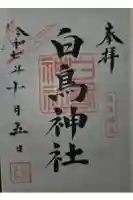 奉拝
白鳥神社
令和七年十月五日